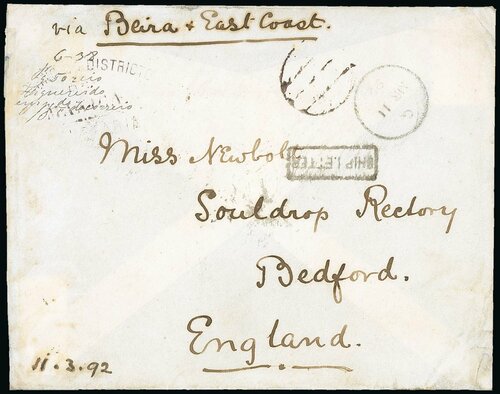 via Beira & East Coast.
6-38
DISTRICT
Miss Newbolt
SHIP LETTER
Souldrop Rectory
Bedford.
England.
11.3.92